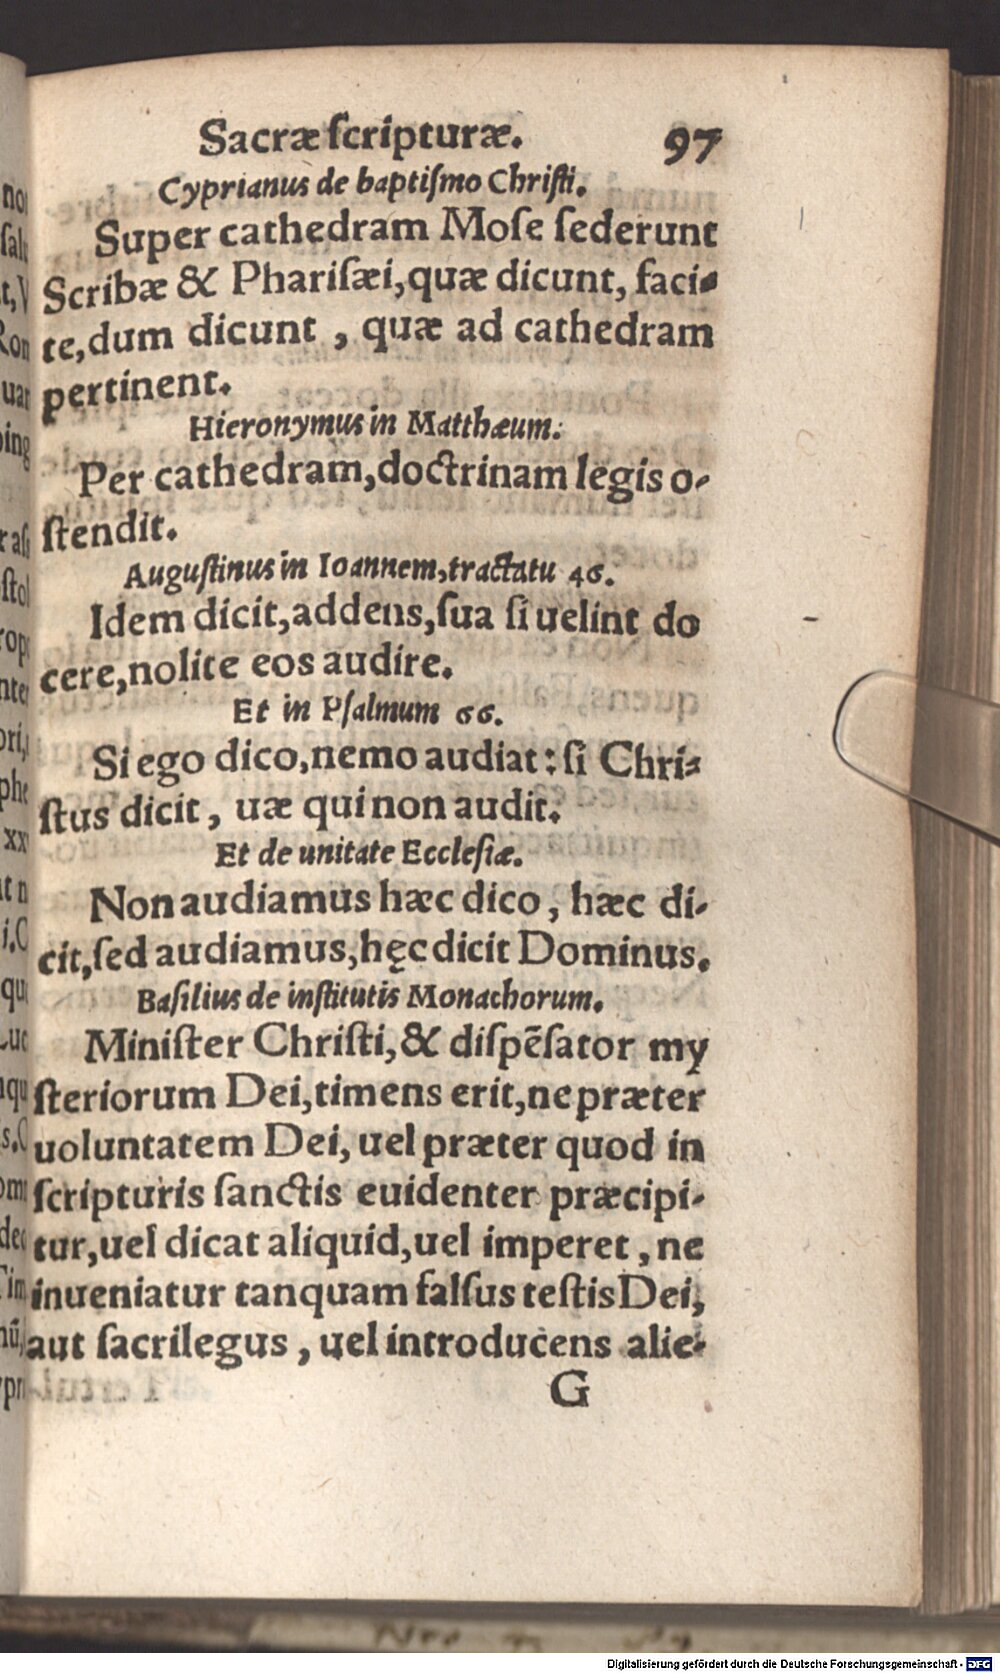 Sacræ ſcripturæ. 97
Cyprianus de baptiſmo Chriſti.
Super cathedram Moſe ſederunt
Scribæ & Phariſæi, quæ dicunt, faci-
te, dum dicunt, quæ ad cathedram
pertinent.
Hieronymus in Matthæum.
Per cathedram, doctrinam legis o-
ſtendit.
Auguſtinus in Ioannem, tractatu 46.
Idem dicit, addens, ſua ſi uelint do
cere, nolite eos audire.
Et in Pſalmum 66.
Si ego dico, nemo audiat: ſi Chri-
ſtus dicit, uæ qui non audit.
Et de unitate Eccleſiæ.
Non audiamus hæc dico, hæc di-
cit, ſed audiamus, hęc dicit Dominus.
Baſilius de inſtitutis Monachorum.
Miniſter Chriſti, & diſpẽſator my
ſteriorum Dei, timens erit, ne præter
uoluntatem Dei, uel præter quod in
ſcripturis ſanctis euidenter præcipi-
tur, uel dicat aliquid, uel imperet, ne
inueniatur tanquam falſus teſtis Dei,
aut ſacrilegus, uel introducens alie-
G
Digitalisierung gefördert durch die Deutsche Forschungsgemeinschaft - DFG